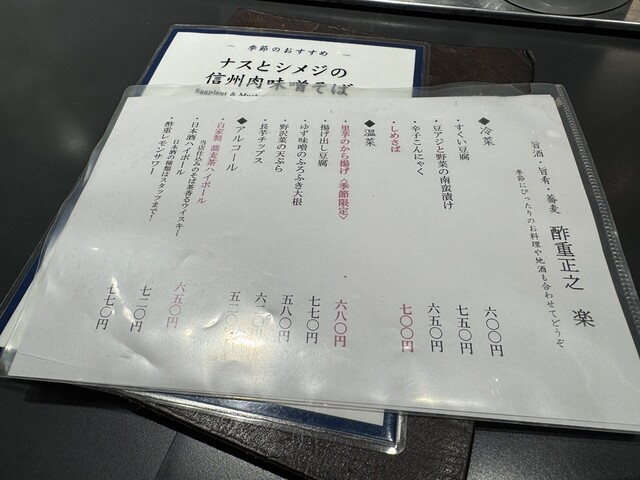 季節のおすすめ
ナスとシメジの
信州肉味噌そば
旨酒・旨肴・蕎麦 酢重正之 楽
季節にぴったりのお料理や地酒も合わせてどうぞ
◆冷菜
・すくい豆腐 六〇〇円
・豆アジと野菜の南蛮漬け 七五〇円
・辛子こんにゃく 六五〇円
・しめさば 七〇〇円
◆温菜
・里芋のから揚げ〈季節限定〉 六八〇円
・揚げ出し豆腐 七七〇円
・ゆず味噌のふろふき大根 五八〇円
・野沢菜の天ぷら
・長芋チップス
◆アルコール
・自家製 蕎麦茶ハイボール 六五〇円
当店仕込みのそば茶香るウイスキー
・日本酒ハイボール 七二〇円
日本酒の種類はスタッフまで!
・酢重レモンサワー 七七〇円